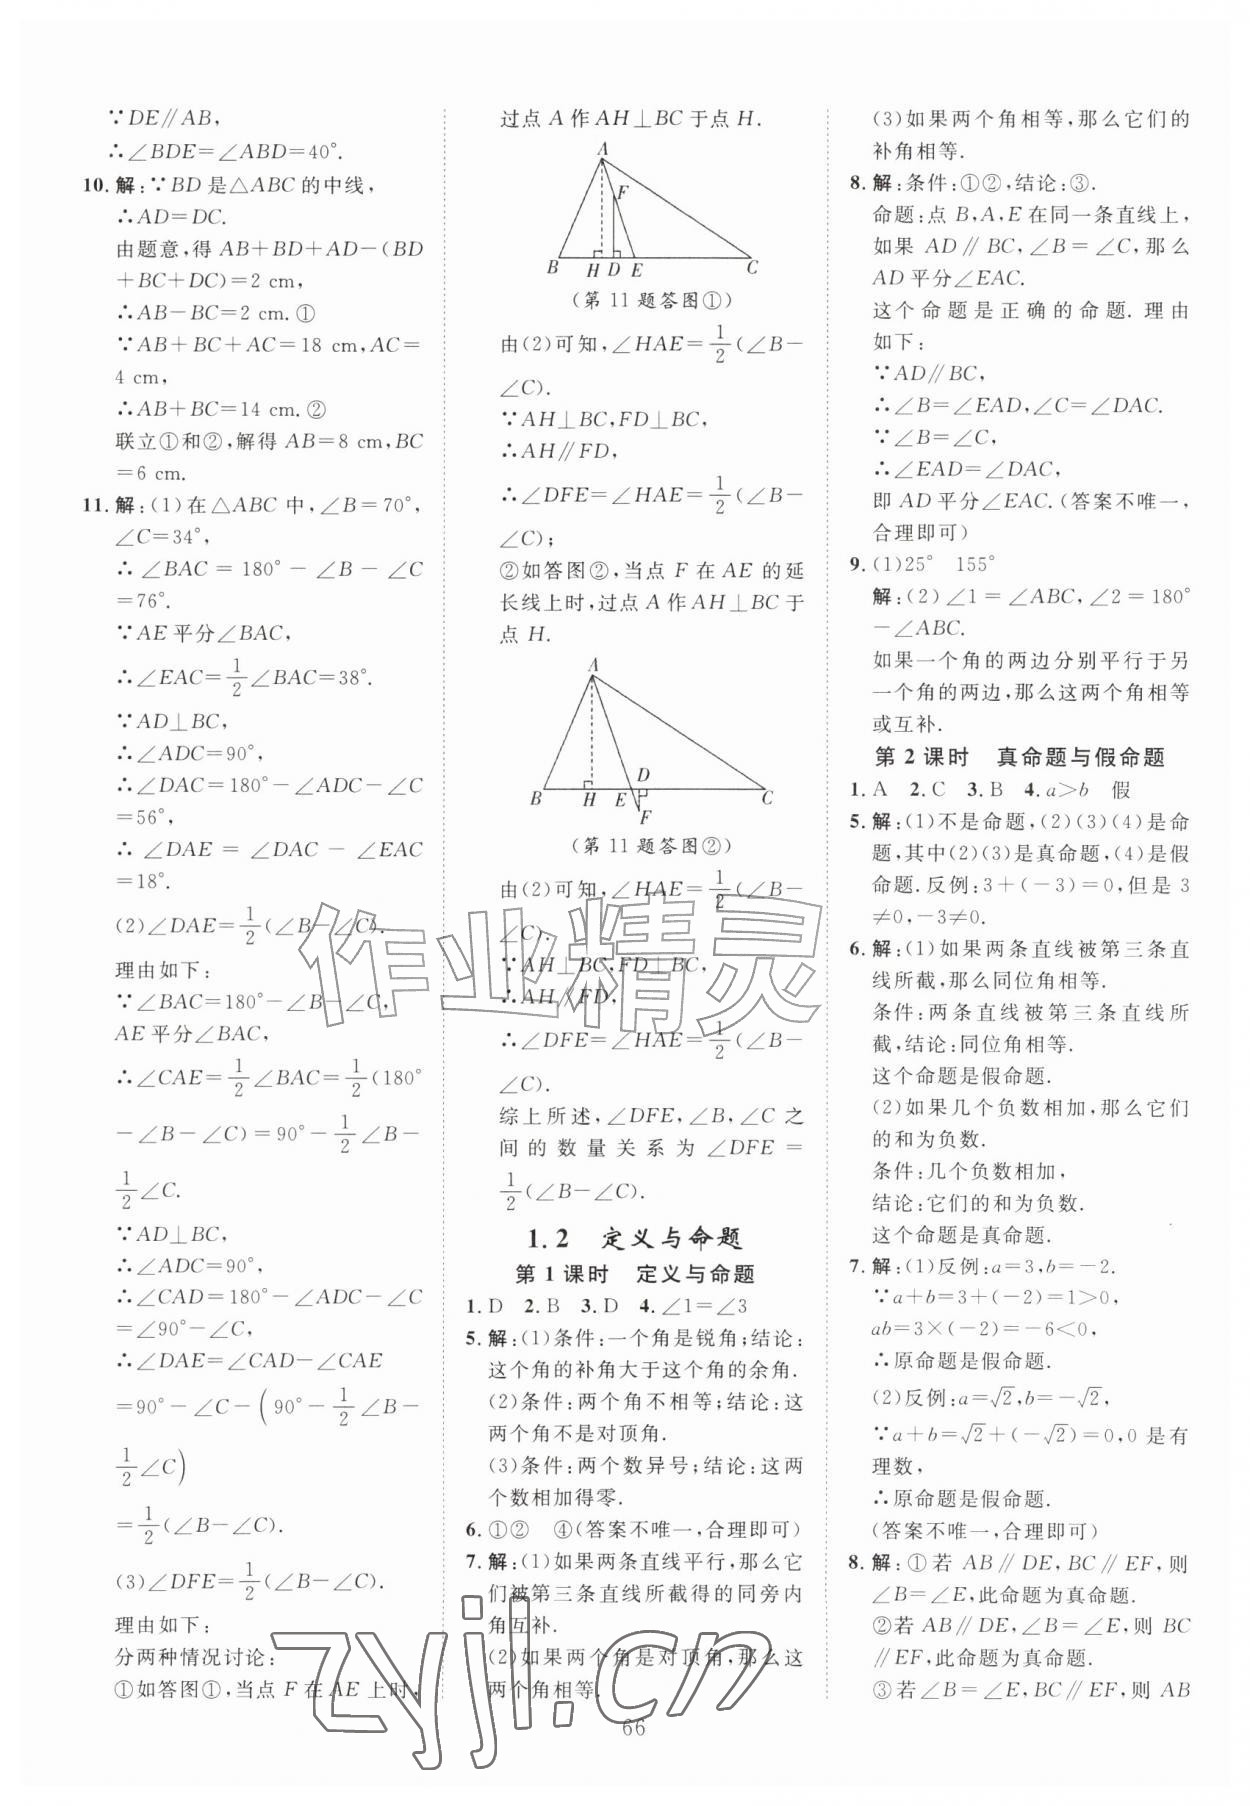 ∵DE∥AB,
∴∠BDE=∠ABD=40°.
10.解:∵BD是△ABC的中线,
∴AD=DC.
由题意,得AB+BD+AD-(BD
+BC+DC)=2 cm,
∴AB-BC=2 cm.①
∵AB+BC+AC=18 cm,AC=
4 cm,
∴AB+BC=14 cm.②
联立①和②,解得AB=8 cm,BC
=6 cm.
11.解:(1)在△ABC中,∠B=70°,
∠C=34°,
∴∠BAC=180°-∠B-∠C
=76°.
∵AE平分∠BAC,
∴∠EAC=1/2∠BAC=38°.
∵AD⊥BC,
∴∠ADC=90°,
∴∠DAC=180°-∠ADC-∠C
=56°,
∴∠DAE=∠DAC-∠EAC
=18°.
(2)∠DAE=1/2(∠B-∠C).
理由如下:
∵∠BAC=180°-∠B-∠C,
AE平分∠BAC,
∴∠CAE=1/2∠BAC=1/2(180°
-∠B-∠C)=90°-1/2∠B-
1/2∠C.
∵AD⊥BC,
∴∠ADC=90°,
∴∠CAD=180°-∠ADC-∠C
=∠90°-∠C,
∴∠DAE=∠CAD-∠CAE
=90°-∠C-(90°-1/2∠B-
1/2∠C)
=1/2(∠B-∠C).
(3)∠DFE=1/2(∠B-∠C).
理由如下:
分两种情况讨论:
①如答图①,当点F在AE上时,
过点A作AH⊥BC于点H.
A
F
B H D E C
(第11题答图①)
由(2)可知,∠HAE=1/2(∠B-
∠C).
∵AH⊥BC,FD⊥BC,
∴AH∥FD,
∴∠DFE=∠HAE=1/2(∠B-
∠C);
②如答图②,当点F在AE的延
长线上时,过点A作AH⊥BC于
点H.
A
D
B H E C
F
(第11题答图②)
由(2)可知,∠HAE=1/2(∠B-
∠C).
∵AH⊥BC,FD⊥BC,
∴AH∥FD,
∴∠DFE=∠HAE=1/2(∠B-
∠C).
综上所述,∠DFE,∠B,∠C之
间的数量关系为∠DFE=
1/2(∠B-∠C).
1.2 定义与命题
第1课时 定义与命题
1.D 2.B 3.D 4.∠1=∠3
5.解:(1)条件:一个角是锐角;结论:
这个角的补角大于这个角的余角.
(2)条件:两个角不相等;结论:这
两个角不是对顶角.
(3)条件:两个数异号;结论:这两
个数相加得零.
6.①② ④(答案不唯一,合理即可)
7.解:(1)如果两条直线平行,那么它
们被第三条直线所截得的同旁内
角互补.
(2)如果两个角是对顶角,那么这
两个角相等.
(3)如果两个角相等,那么它们的
补角相等.
8.解:条件:①②,结论:③.
命题:点B,A,E在同一条直线上,
如果AD∥BC,∠B=∠C,那么
AD平分∠EAC.
这个命题是正确的命题.理由
如下:
∵AD∥BC,
∴∠B=∠EAD,∠C=∠DAC.
∵∠B=∠C,
∴∠EAD=∠DAC,
即AD平分∠EAC.(答案不唯一,
合理即可)
9.(1)25° 155°
解:(2)∠1=∠ABC,∠2=180°
-∠ABC.
如果一个角的两边分别平行于另
一个角的两边,那么这两个角相等
或互补.
第2课时 真命题与假命题
1.A 2.C 3.B 4.a>b 假
5.解:(1)不是命题,(2)(3)(4)是命
题,其中(2)(3)是真命题,(4)是假
命题.反例:3+(-3)=0,但是3
≠0,-3≠0.
6.解:(1)如果两条直线被第三条直
线所截,那么同位角相等.
条件:两条直线被第三条直线所
截,结论:同位角相等.
这个命题是假命题.
(2)如果几个负数相加,那么它们
的和为负数.
条件:几个负数相加,
结论:它们的和为负数.
这个命题是真命题.
7.解:(1)反例:a=3,b=-2.
∵a+b=3+(-2)=1>0,
ab=3×(-2)=-6<0,
∴原命题是假命题.
(2)反例:a=√2,b=-√2,
∵a+b=√2+(-√2)=0,0是有
理数,
∴原命题是假命题.
(答案不唯一,合理即可)
8.解:①若AB∥DE,BC∥EF,则
∠B=∠E,此命题为真命题.
②若AB∥DE,∠B=∠E,则BC
∥EF,此命题为真命题.
③若∠B=∠E,BC∥EF,则AB
66
作业精灵
zyjl.cn